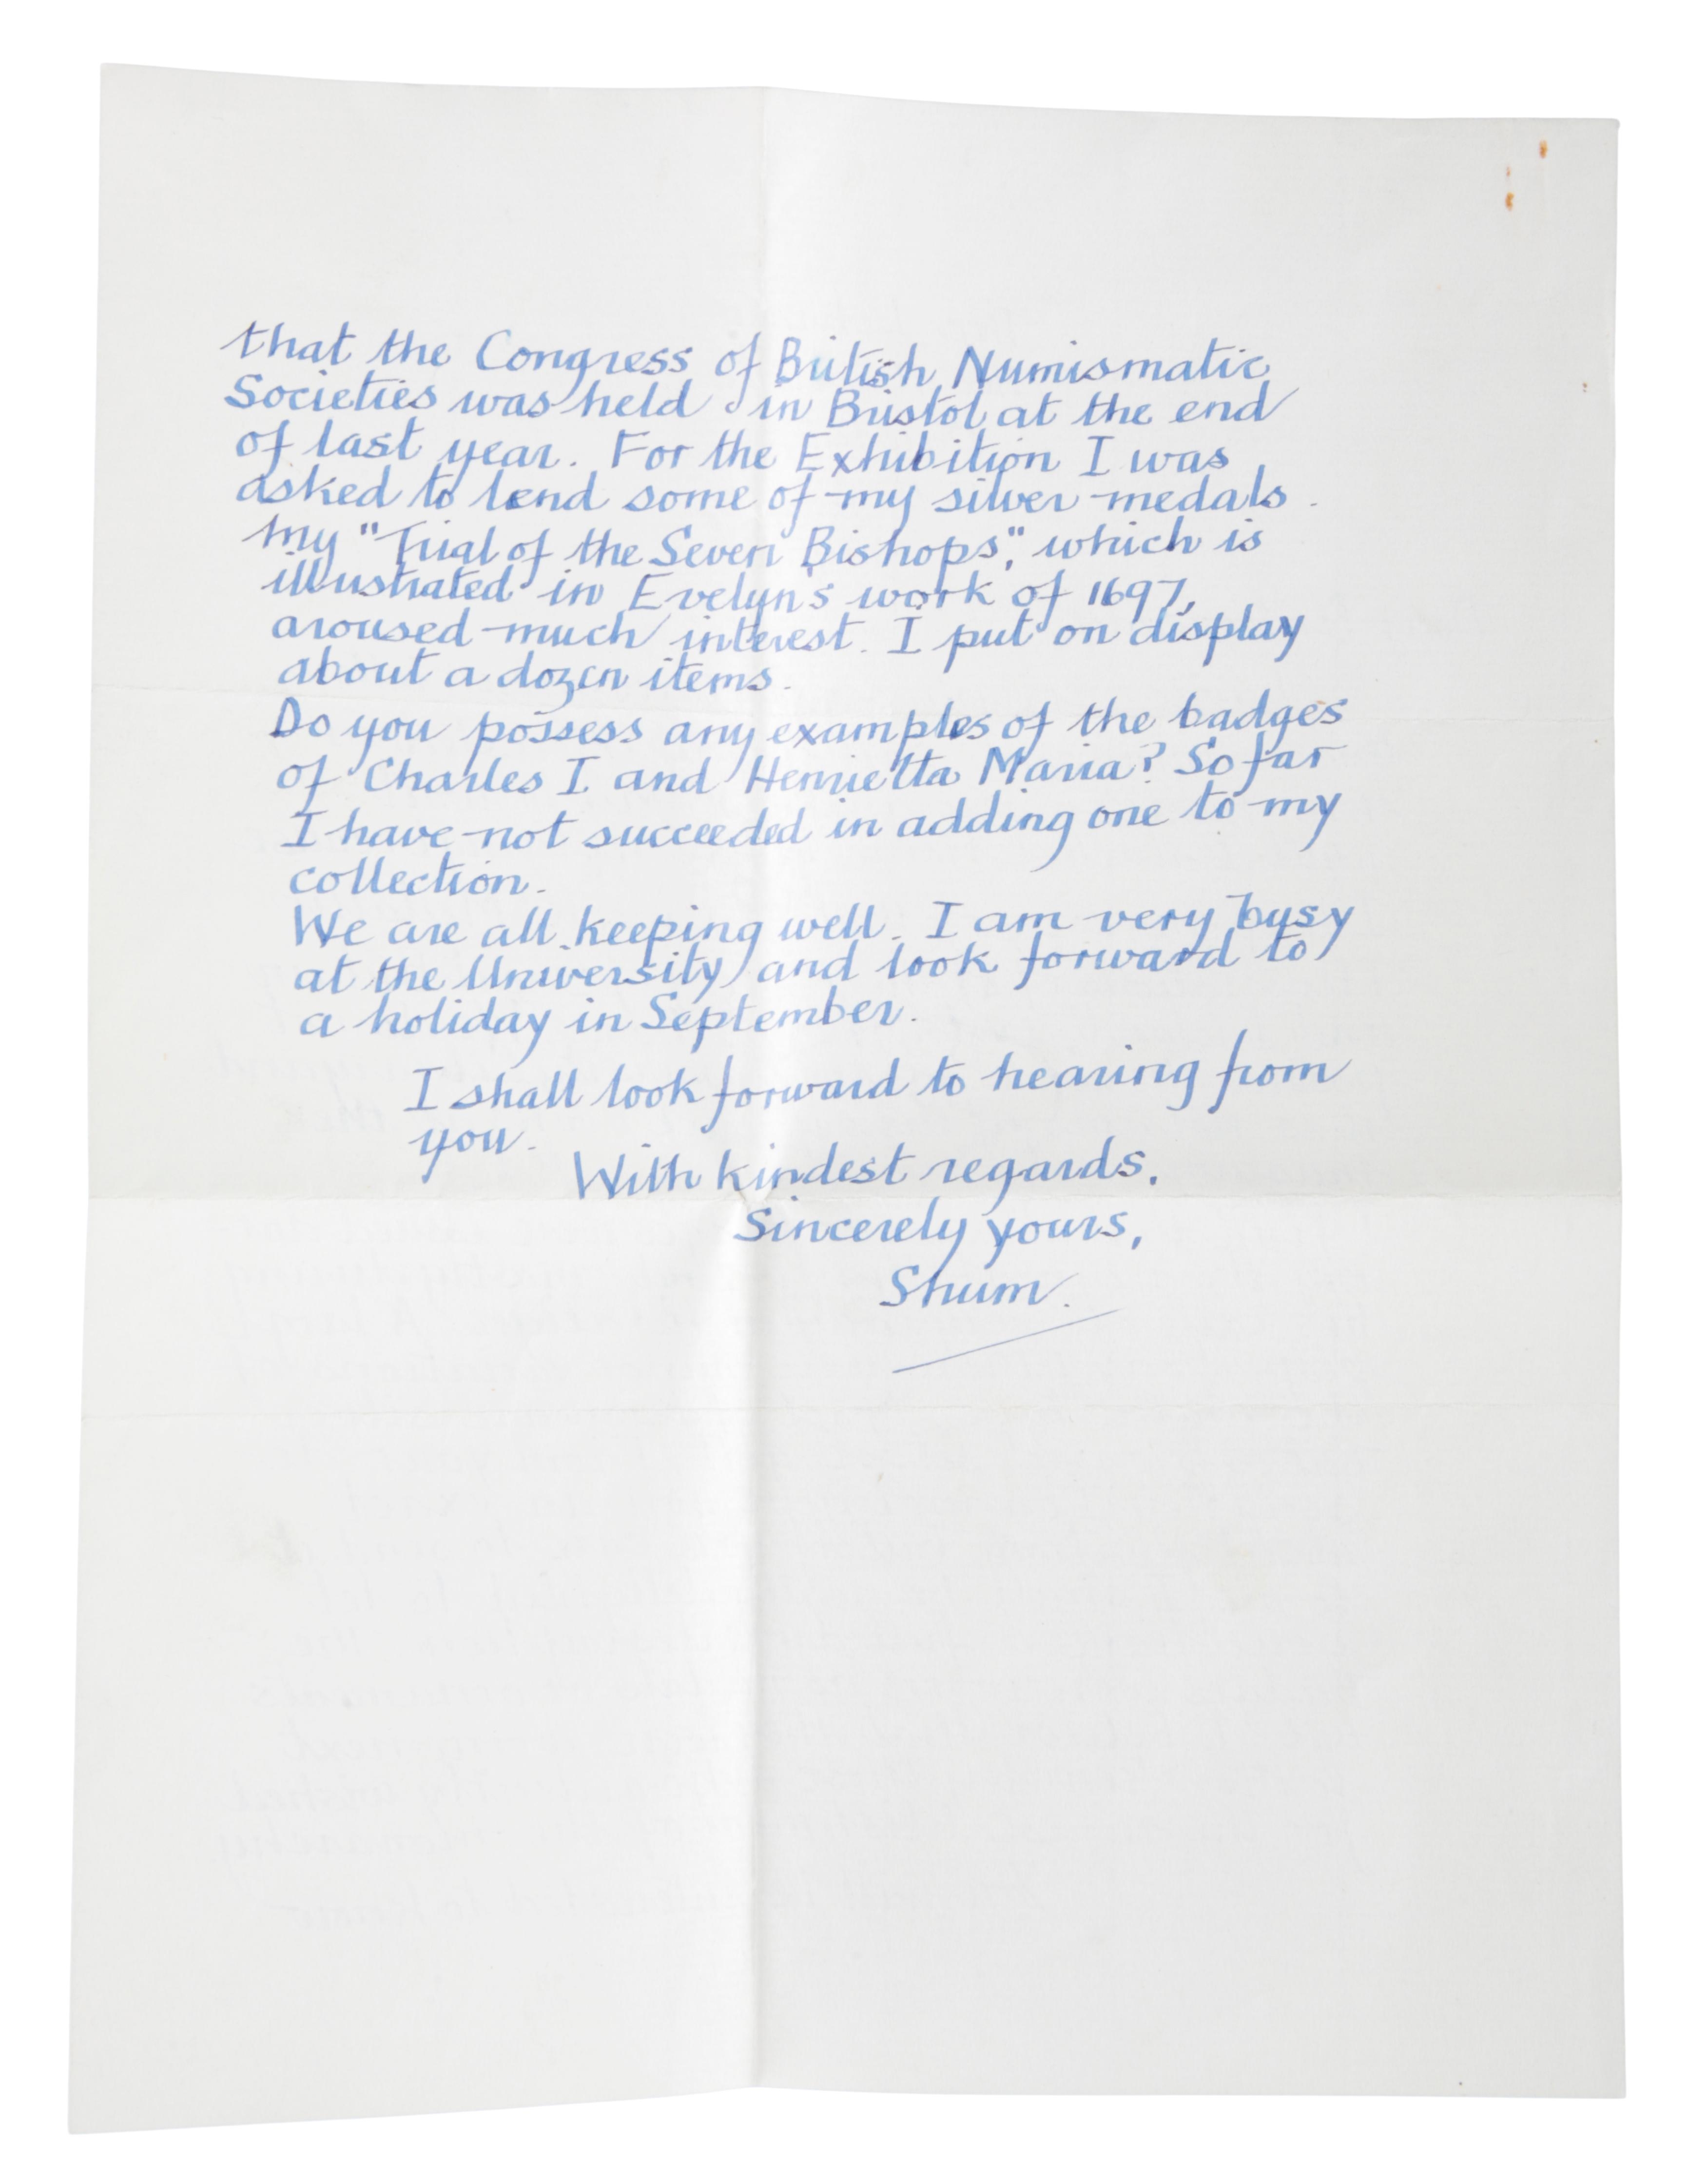 that the Congress of British Numismatic
Societies was held in Bristol at the end
of last year. For the Exhibition I was
asked to lend some of my silver medals.
My "Trial of the Seven Bishops", which is
illustrated in Evelyn's work of 1697,
aroused much interest. I put on display
about a dozen items.
Do you possess any examples of the badges
of Charles I and Henrietta Maria? So far
I have not succeeded in adding one to my
collection.
We are all keeping well. I am very busy
at the University and look forward to
a holiday in September.
I shall look forward to hearing from
you.
With kindest regards.
Sincerely yours,
Shum.